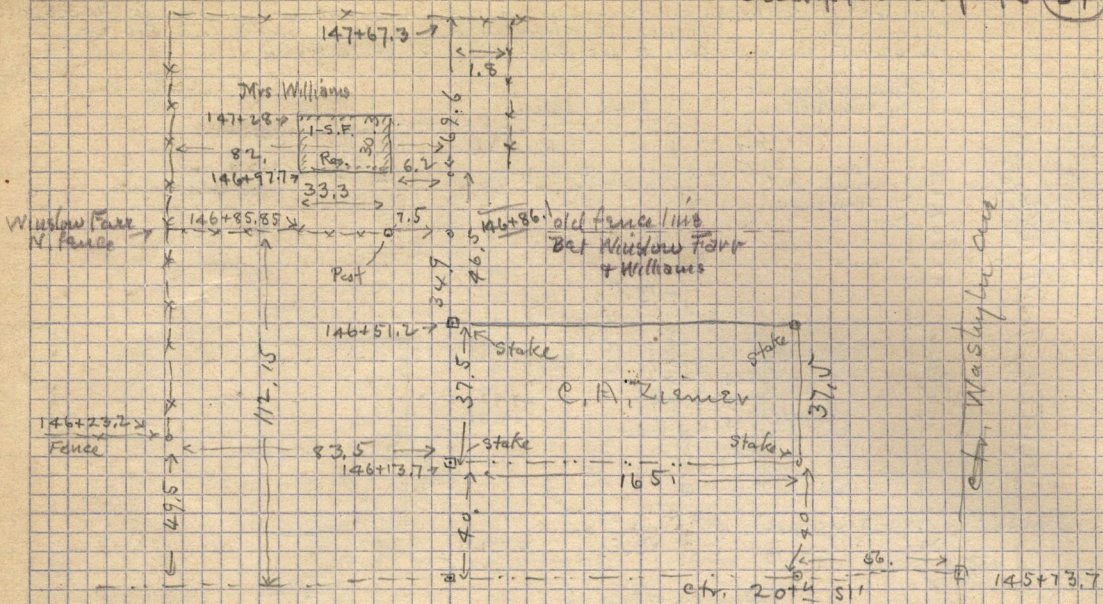 147+67.3
1.8
Mrs. Williams
147+28
1-S.F.
Res.
30
69.6
82.
6.2
146+97.7
33.3
Winslow Farr
N. fence
146+85.85
7.5
146+86.1
old fence line
Bet Winslow Farr
+ Williams
Post
34.9
46.5
146+51.2
Stake
Stake
37.5
37.5
C. A. Ziemer
112.15
146+23.2
Fence
83.5
Stake
Stake
146+13.7
165.
49.5
40.
40
56.
ctr. 20th St.
145+73.7